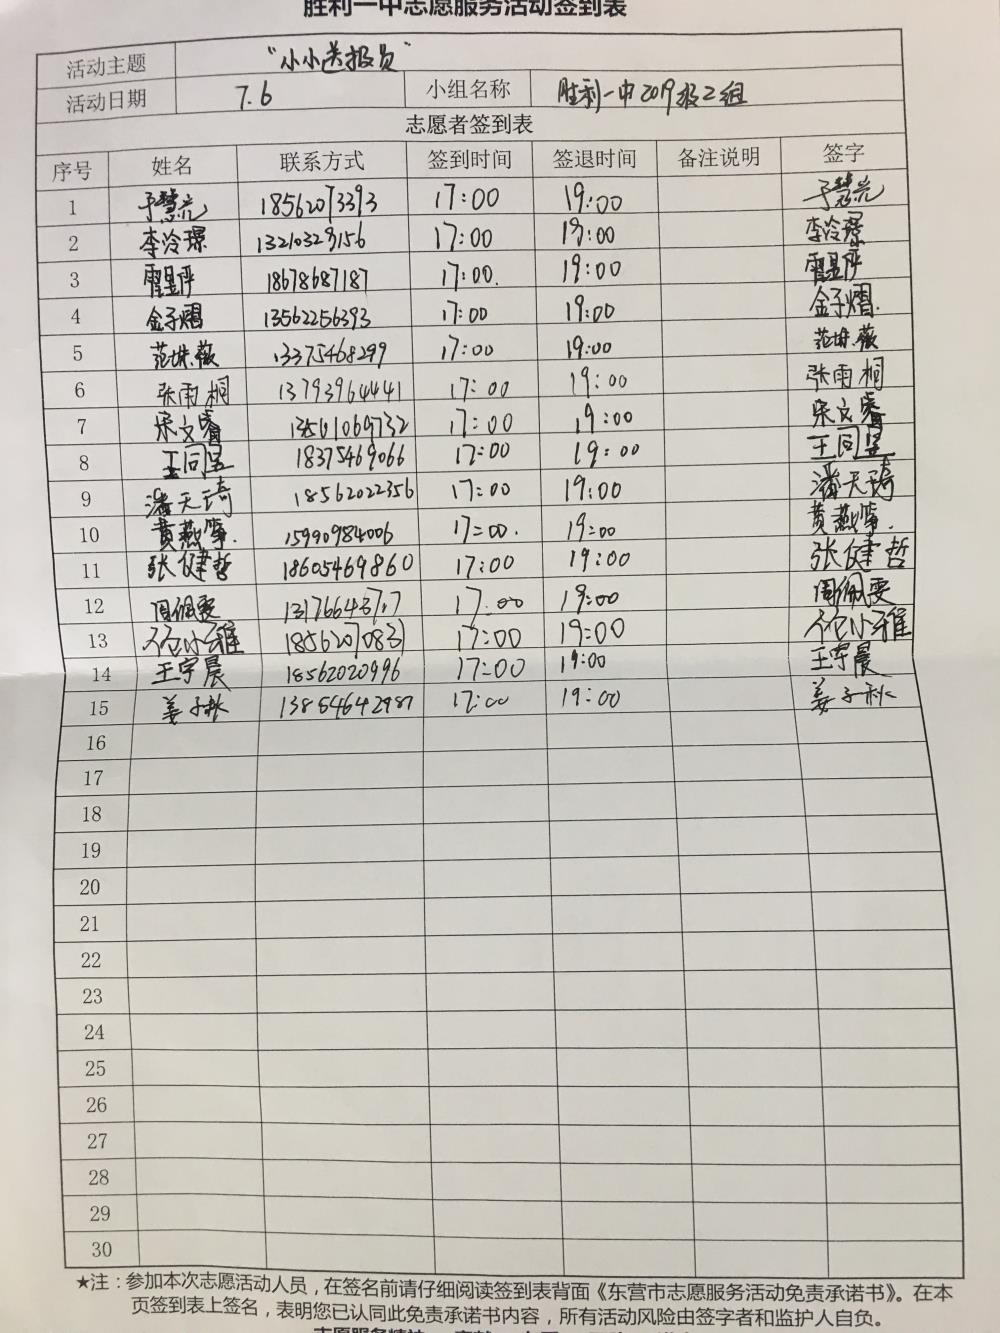 胜利一中志愿服务活动签到表
活动主题 "小小送报员"
活动日期 7.6 小组名称 胜利一中2019级2组
志愿者签到表
序号 姓名 联系方式 签到时间 签退时间 备注说明 签字
1 于慧莹 18562073393 17:00 19:00 于慧莹
2 李冷璟 13210329156 17:00 19:00 李冷璟
3 18678687187 17:00. 19:00
4 金子熠 13562256393 17:00 19:00 金子熠.
5 范姝薇 13375468299 17:00 19:00 范姝薇
6 张雨桐 13793964441 17:00 19:00 张雨桐
7 宋文睿 13561069732 17:00 19:00 宋文睿
8 王同昱 18375469066 17:00 19:00 王同昱
9 潘天琦 18562022356 17:00 19:00 潘天琦
10 黄燕筝. 15990984006 17:00. 19:00 黄燕筝.
11 张健哲 18605469860 17:00 19:00 张健哲
12 周佩雯 17:00 19:00 周佩雯
13 小雅 18562070831 17:00 19:00 小雅
14 王宇晨 18562020996 17:00 19:00 王宇晨
15 姜子秋 13854642987 17:00 19:00 姜子秋
16
17
18
19
20
21
22
23
24
25
26
27
28
29
30
★注：参加本次志愿活动人员，在签名前请仔细阅读签到表背面《东营市志愿服务活动免责承诺书》。在本
页签到表上签名，表明您已认同此免责承诺书内容，所有活动风险由签字者和监护人自负。